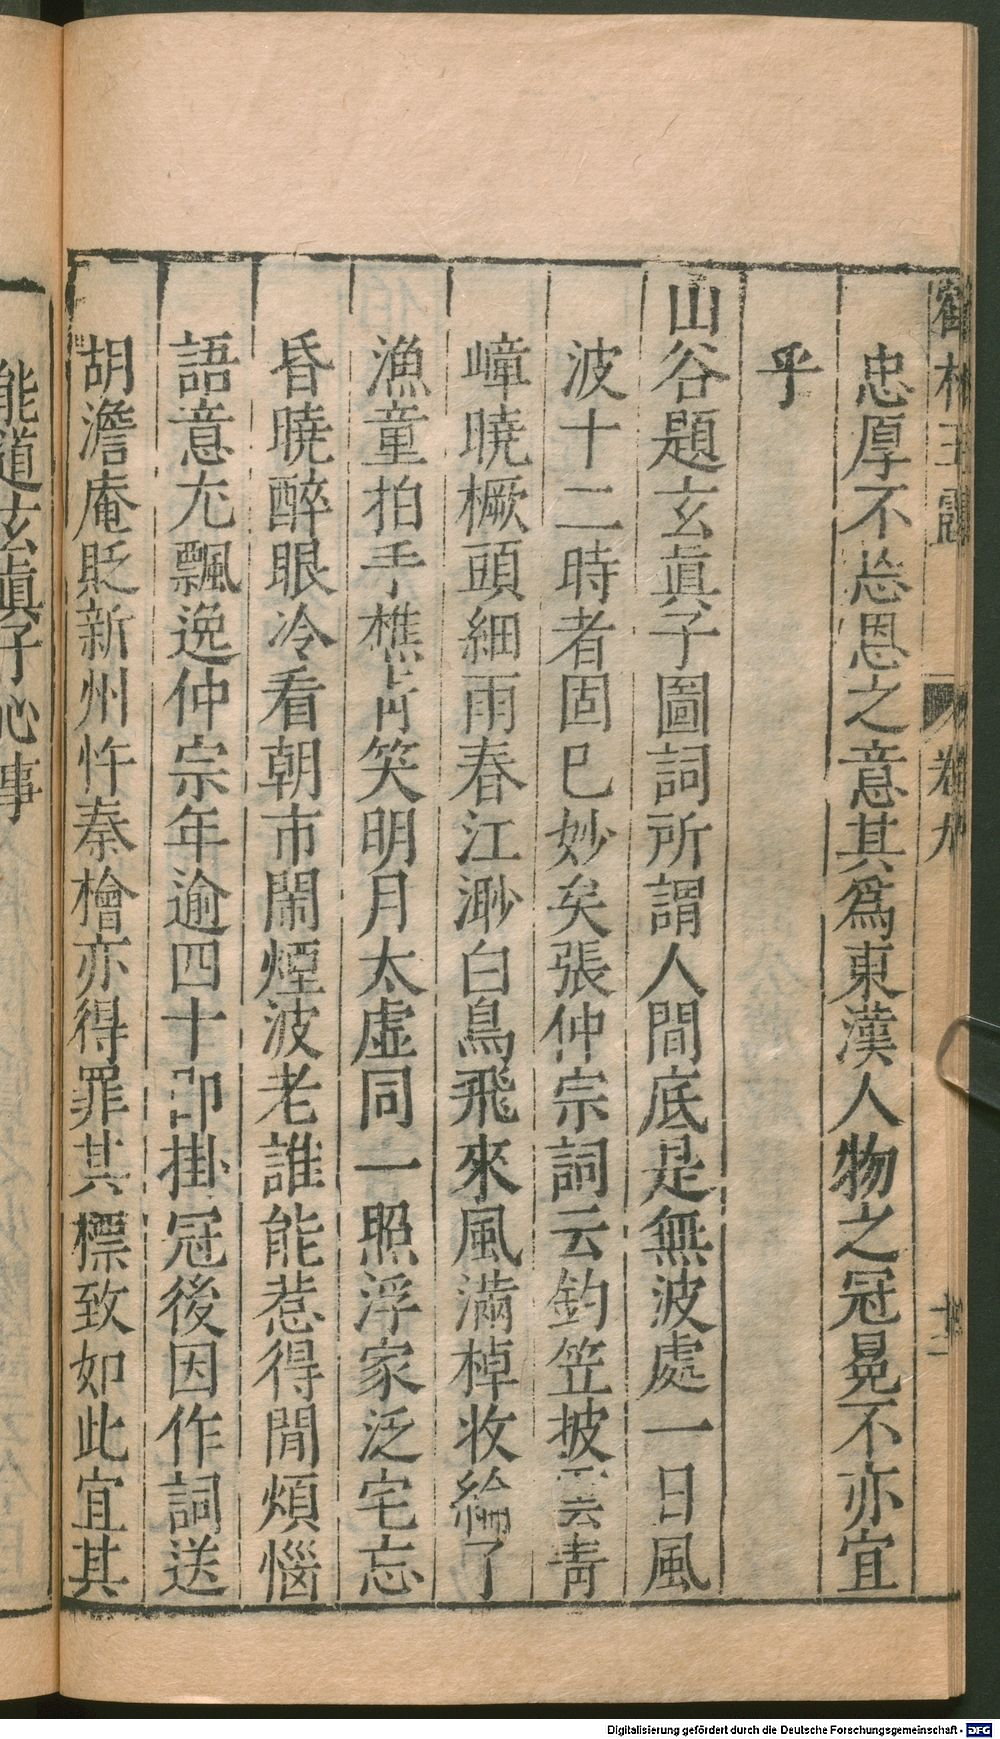 鶴林玉露 卷九 十二
忠厚不忘恩之意其爲東漢人物之冠冕不亦宜
乎
山谷題玄眞子圖詞所謂人間底是無波處一日風
波十二時者固已妙矣張仲宗詞云釣笠披雲青
嶂曉橛頭細雨春江渺白鳥飛來風滿棹收綸了
漁童拍手樵青笑明月太虛同一照浮家泛宅忘
昏曉醉眼冷看朝市鬧煙波老誰能惹得閒煩惱
語意尤飄逸仲宗年逾四十卽掛冠後因作詞送
胡澹庵貶新州忤秦檜亦得罪其標致如此宜其
能道玄眞子心事
Digitalisierung gefördert durch die Deutsche Forschungsgemeinschaft - DFG